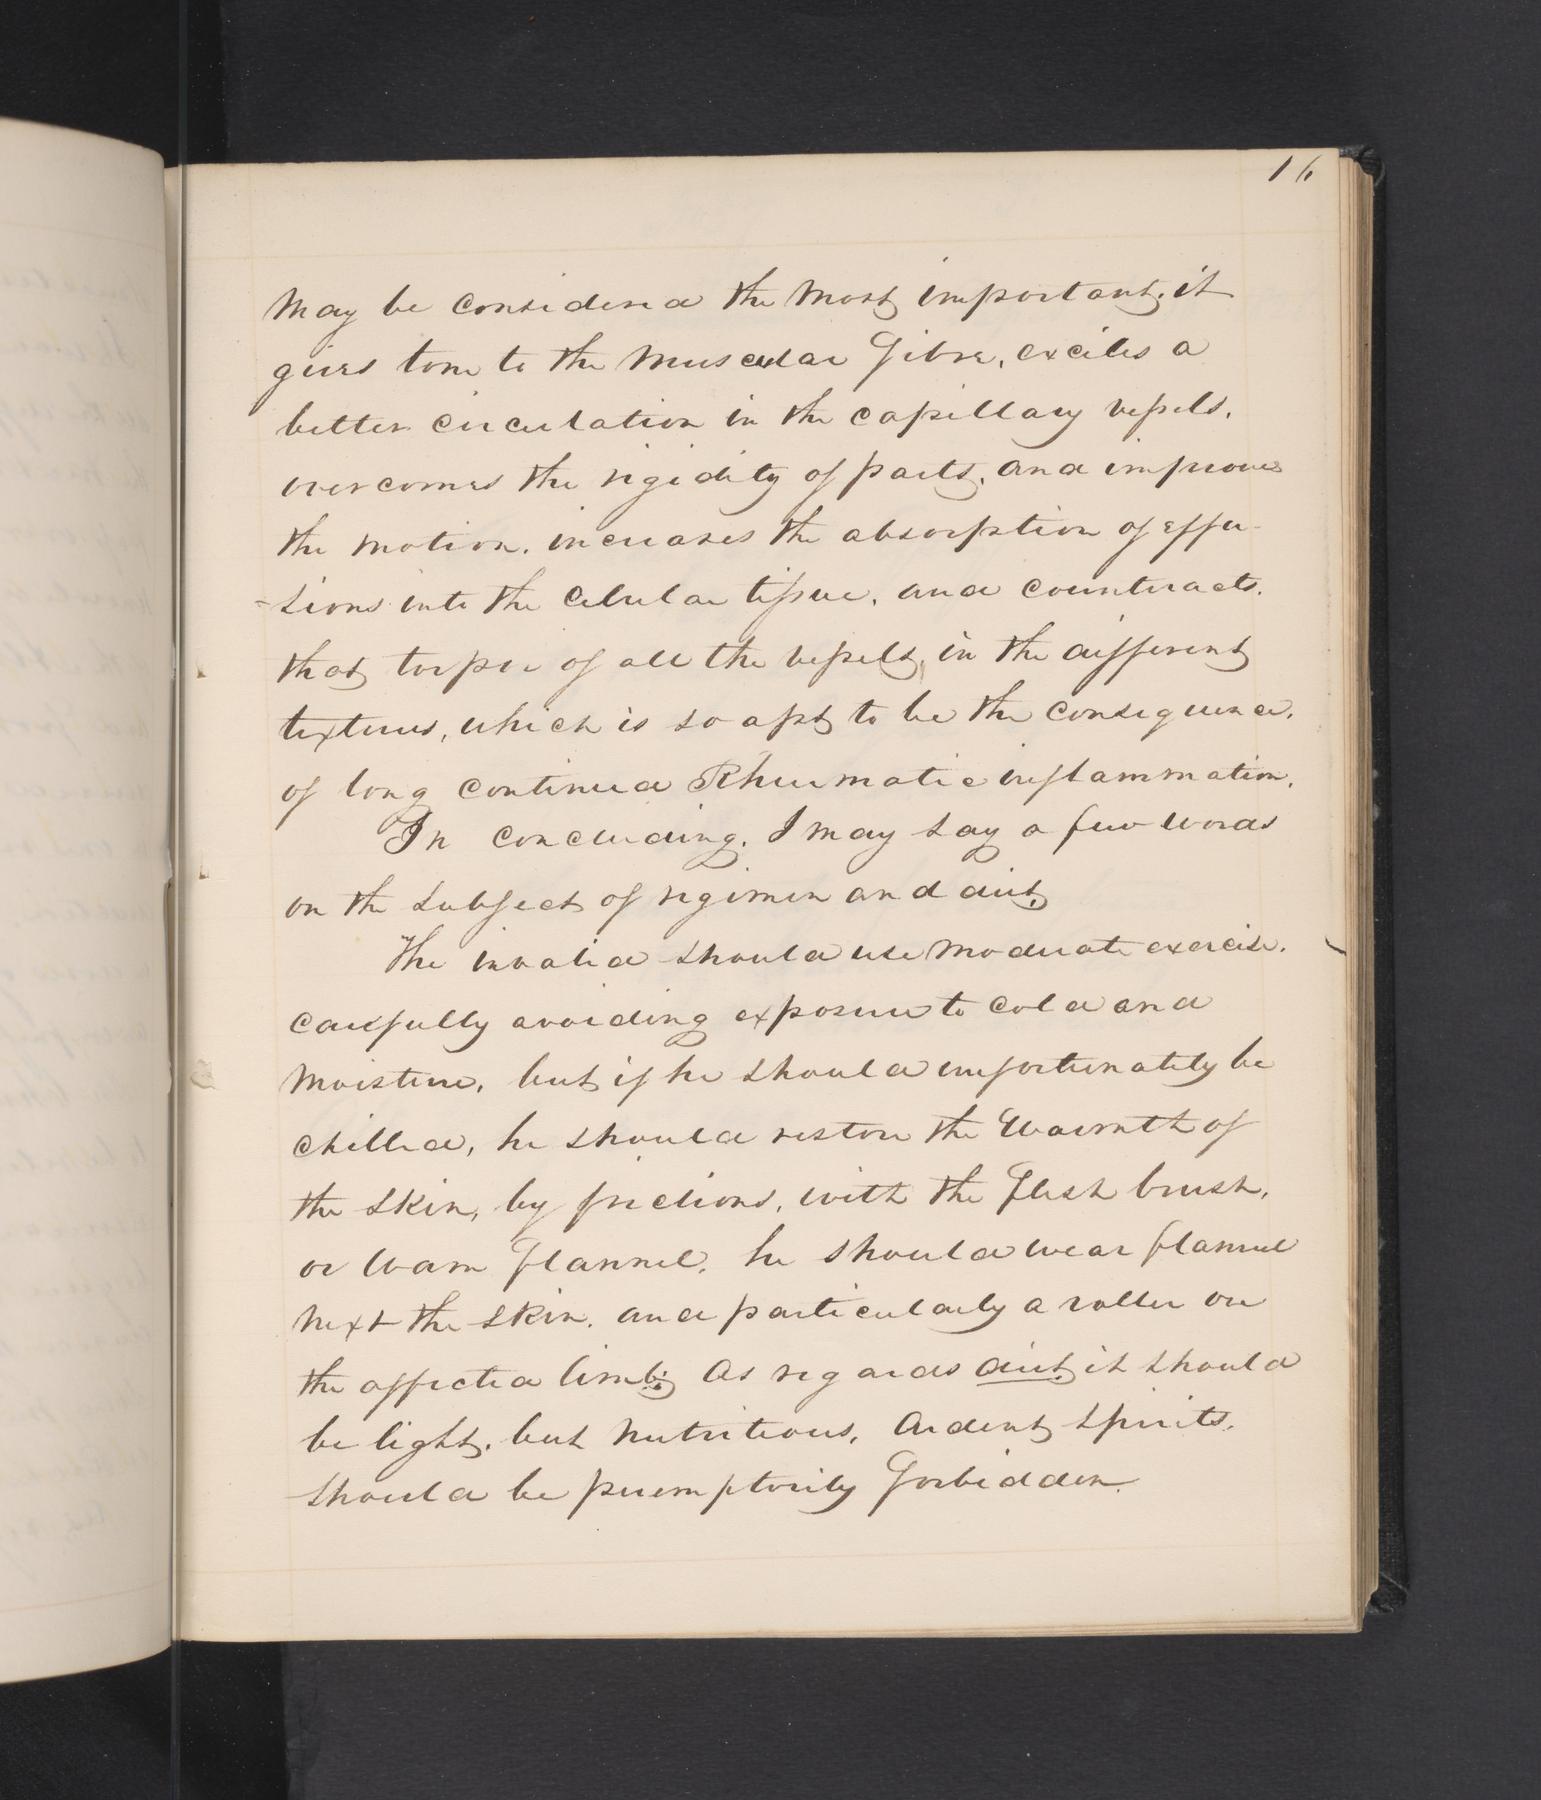 16
May be considered the Most important, it
gives tone to the Muscular Fibre, excites a
better circulation in the capillary vessels,
overcomes the rigidity of parts, and improves
the motion, increases the absorption of effu-
-sions into the Celular tissue, and counteracts
that torper of all the vessels, in the different
textures, which is so apt to be the consequence,
of long continued Rheumatic inflammation.
In concluding, I may say a few words
on the subject of regimen and diet,
The invalid should use moderate exercise,
carefully avoiding exposure to cold and
Moisture, but if he should unfortunately be
chilled, he should restore the Warmth of
the skin, by frictions, with the Flesh brush,
or Warm Flannel, he should wear flannel
next the skin, and particularly a roller on
the affected limb; As regards diet, it should
be light, but Nutritious, Ardent Spirits,
should be premptorily Forbidden.